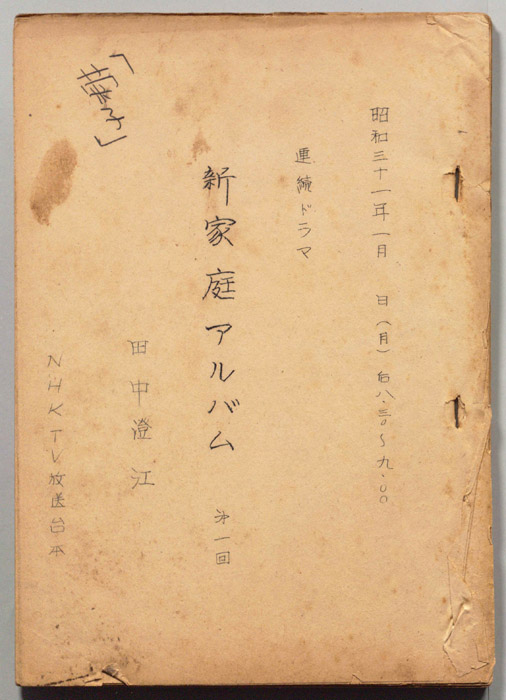 昭和三十一年一月　日（月）后八.三〇〜九.〇〇
連続ドラマ
新家庭アルバム　第一回
田中澄江
「栄子」
NHKTV放送台本